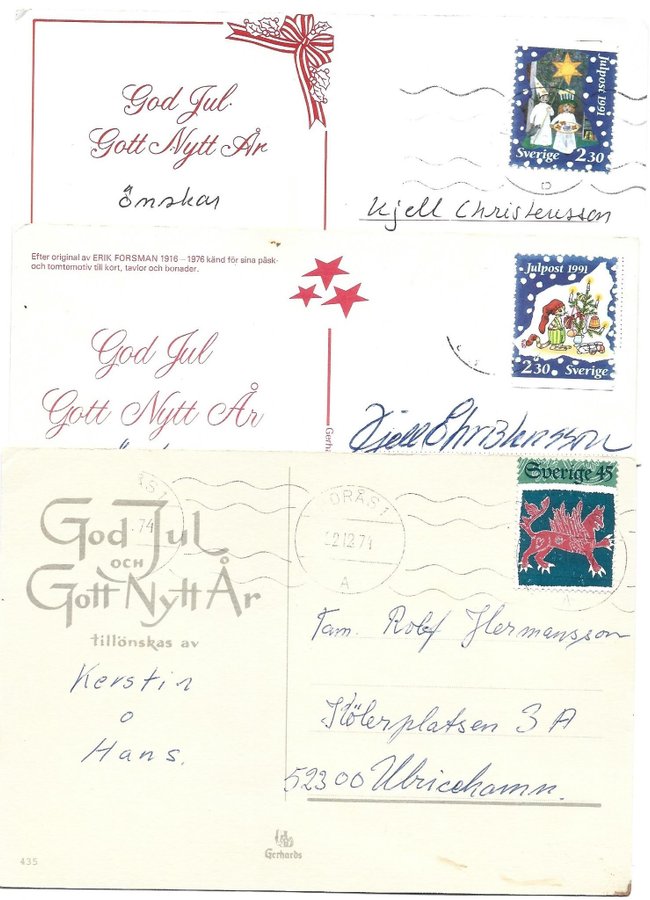 God Jul
Gott Nytt År
Önskar
Kjell Christensson
Julpost 1991
Sverige 2.30
Efter original av ERIK FORSMAN 1916 – 1976 känd för sina påsk-
och tomtemotiv till kort, tavlor och bonader.
God Jul
Gott Nytt År
Gerha
Kjell Christensson
Julpost 1991
2.30 Sverige
God Jul
OCH
Gott Nytt År
tillönskas av
Kerstin
o
Hans.
ÅS 1
.74
BORÅS 1
12.74
A
Sverige 45
A
Fam. Rolf Hermansson
3 A
52300 Ulricehamn.
Gerhards
435